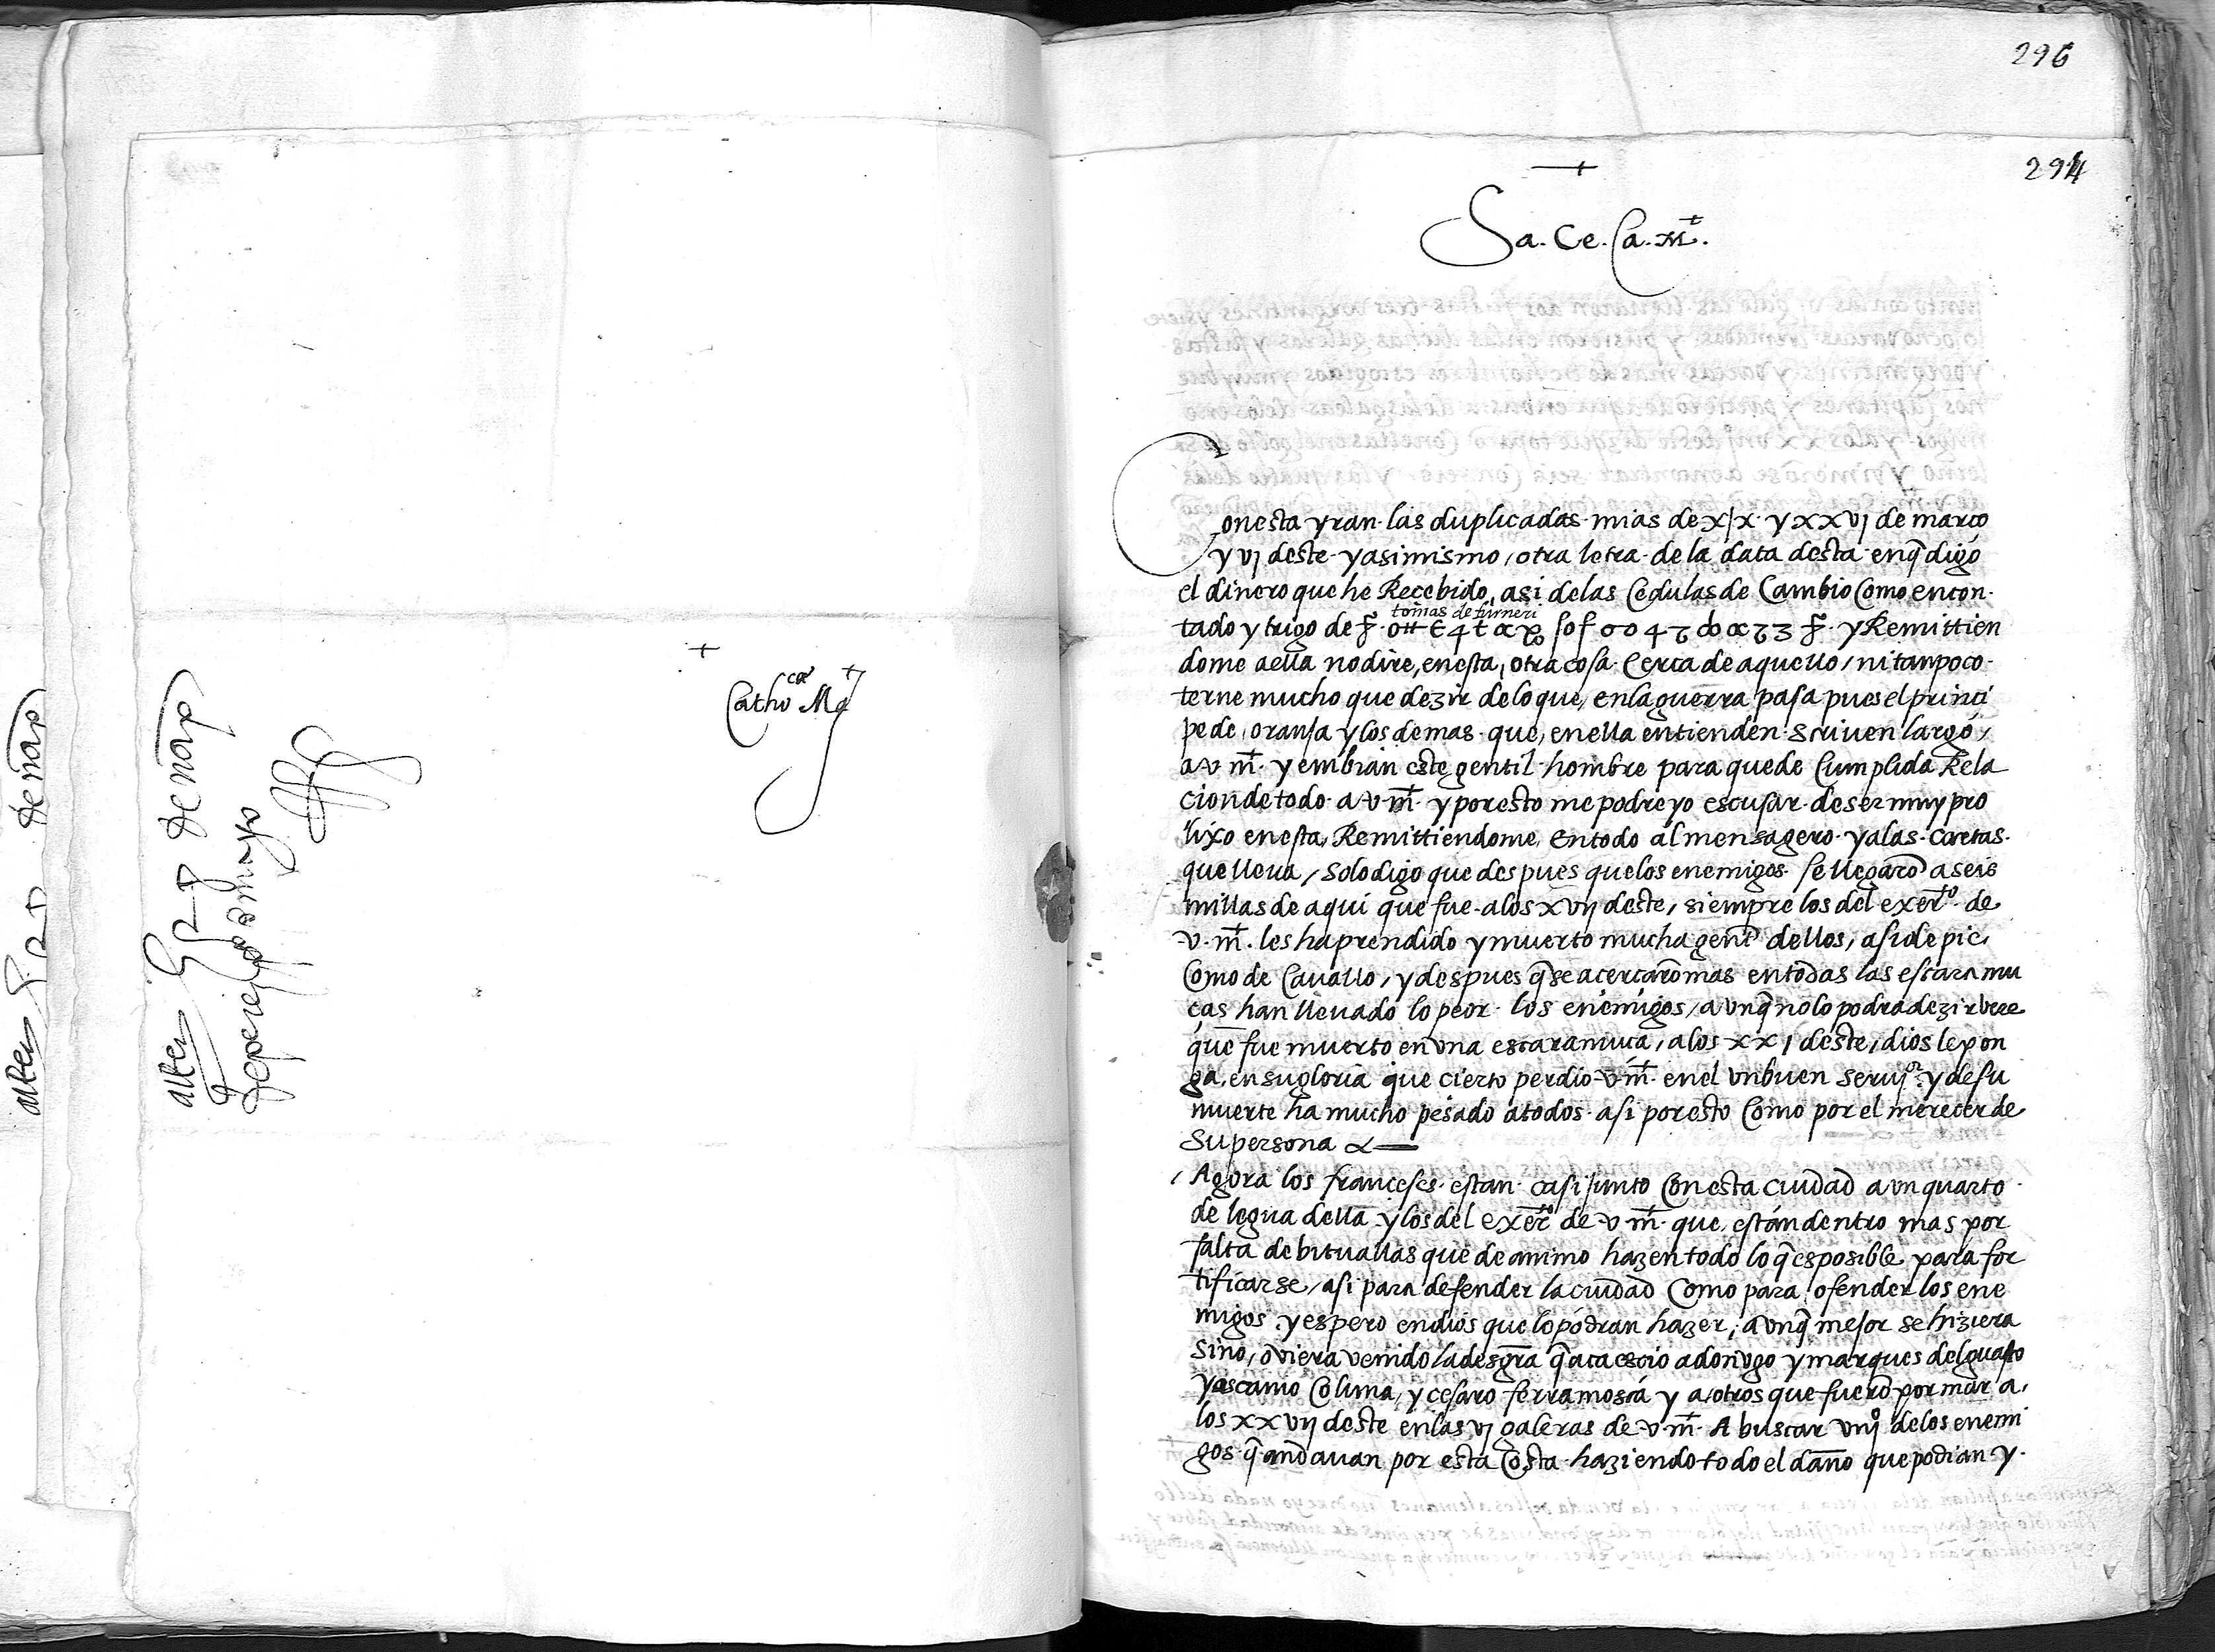 296
294
+
Sa. Ce. Ca. M.t
Con esta yran las duplicadas mias de xix y xxvj de março
y vj deste y asimismo / otra letra de la data desta en q̄ digo
el dinero que he Recebido, asi de las Cedulas de Cambio Como en con
tomas de furneri
tado y trigo de y Remittien
dome a ella no dire, en esta, otra cosa Cerca de aquello / ni tanpoco
terne mucho que dezir de lo que, en la guerra pasa pues el princi
pe de, oranja y los demas que, en ella entienden scriuen largo /
a v. m.t y embian este gentil hombre para que de Cumplida Rela
cion de todo a v. m.t y por esto me podre yo escusar de ser muy pro
lixo en esta, Remittiendome, en todo al mensagero y a las cartas
que lleua / solo digo que despues que los enemigos se llegarō a seis
millas de aqui que fue a los xvij deste / siempre los del exerto de
v. m.t les ha prendido y muerto mucha gente dellos, asi de pie,
Como de Cauallo, y despues q̄ se acercarō mas en todas las escaramu
ças han lleuado lo peor los enemigos / a vnq̄ no lo podra dezir vere
que fue muerto en vna escaramuça, a los xxj deste / dios le pon
ga, en su gloria que cierto perdio v. m.t en el vn buen seruior y de su
muerte ha mucho pesado a todos asi por esto Como por el merecer de
su persona
/ Agora los franceses estan casi junto Con esta ciudad a vn quarto
de legua della y los del exerto de v. m.t que, están dentro mas por
falta de bituallas que de animo hazen todo lo q̄ es posible para for
tificarse / asi para defender la ciudad Como para, ofender los ene
migos y espero en dios que lo podran hazer, a vnq̄ mejor se hiziera
si no, ōviera venido la desgra q̄ acaescio a don vgo y marques del guasto
y ascanio Coluna, y cesaro ferramosca y a otros que fuerō por mar a,
los xxvij deste en las vj galeras de v. m.t A buscar viijo de los enemi
gos q̄ andauan por esta Costa haziendo todo el daño que podian y
+
Cathoca Mat